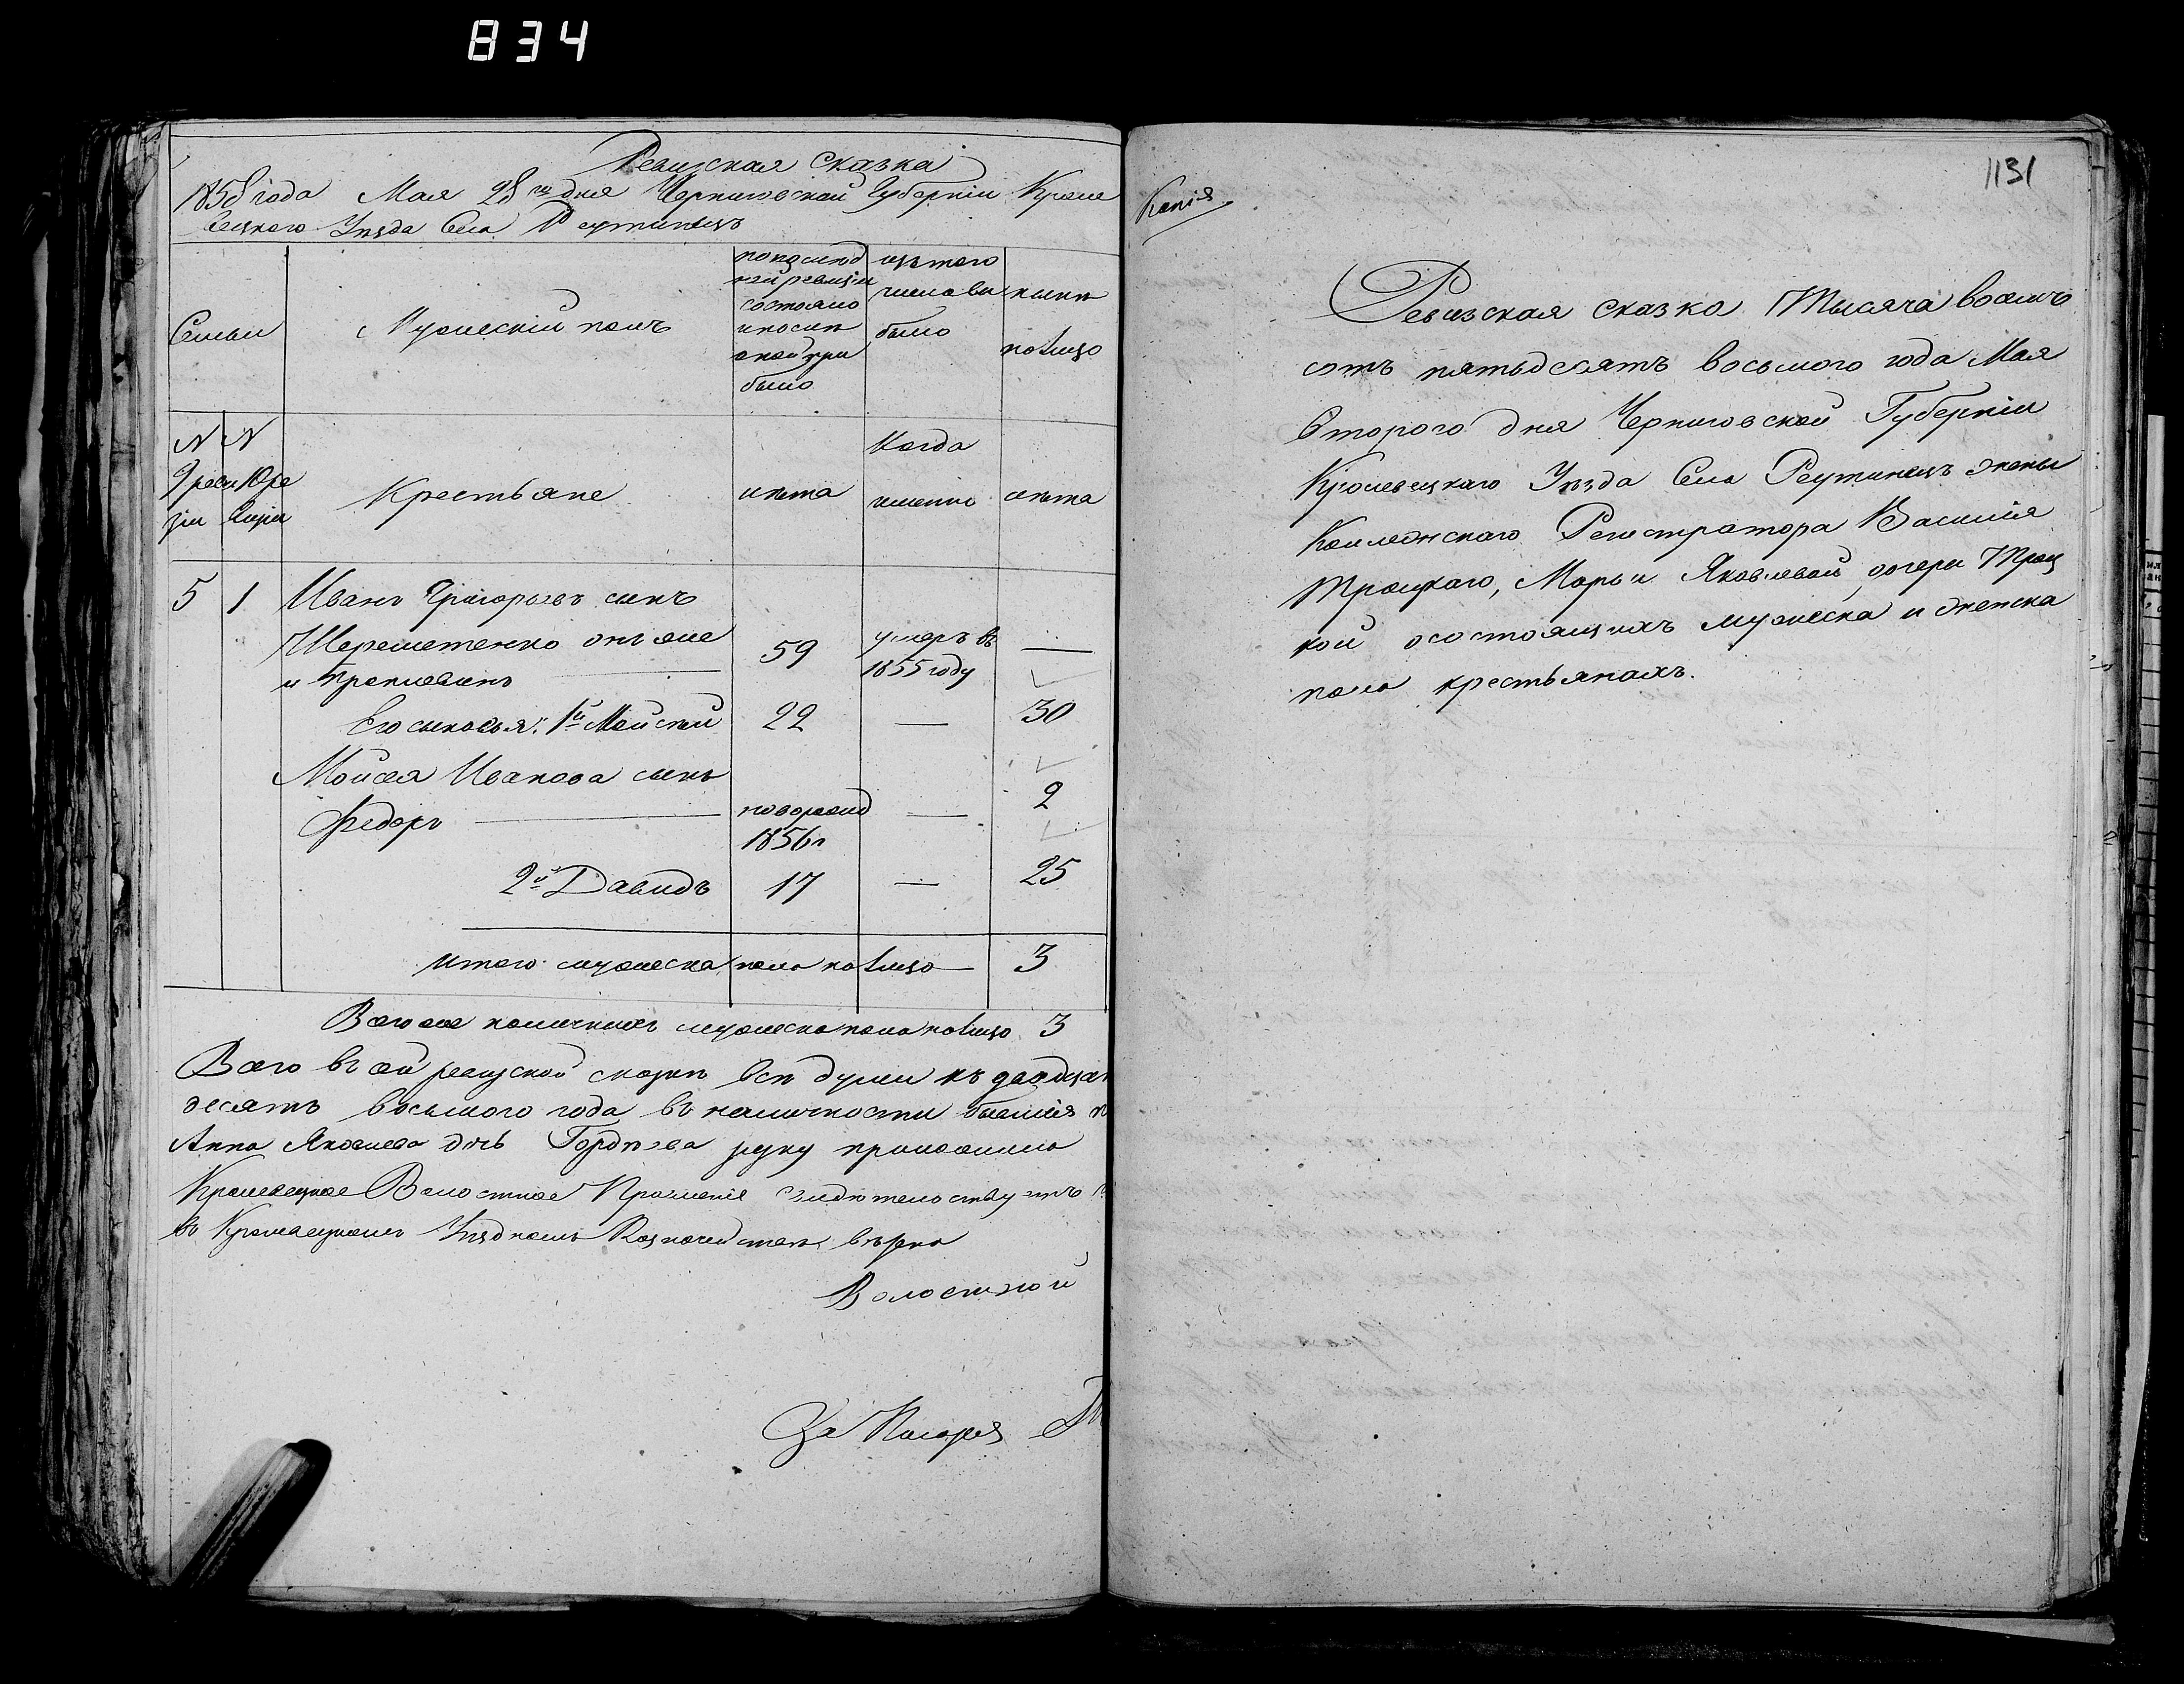 834
Ревизская сказка
1858 года Мая 28го дня Черниговской Губернiи Кроле
вецкаго Уезда Села Реутинецъ
Семьи
Мужескiй полъ
по послед
ней ревизiи
состояло
и после
оной при
было
изъ того
числа вы
было
ныне
налицо
N N
9 реви
зiи
10 ре
визiи
Крестьяне
лета
Когда
именно
лета
5 1 Иванъ Григорьевъ сынъ
Шереметенко онъ же
и 59 умеръ въ
1855 году —
Его сыновья: 1й Мойсей 22 — 30
Мойсея Иванова сынъ
Федоръ новорожд
1856г — 2
2й Давидъ 17 — 25
Итого мужеска пола налицо 3
Всего же наличныхъ мужеска пола налицо 3
Всего въ сей ревизской сказке все души къ
десятъ восьмого года въ наличности бывшiя
Анна Яковлева дочь Гордеева руку приложила
Кролевецкое Волостное Правленiе свидетельствуетъ
въ Кролевецкомъ Уездномъ Казначействе верно
Волостной
За Писаря
1131
Копiя
Ревизская сказка Тысяча восемь
сотъ пятьдесятъ восьмого года Мая
Второго дня Черниговской Губернiи
Кролевецкаго Уезда Села Реутинецъ жены
Коллежскаго Регистратора Василiя
Троцкаго, Марьи Яковлевой дочери Троц
кой о состоящихъ мужеска и женска
пола крестьянахъ.